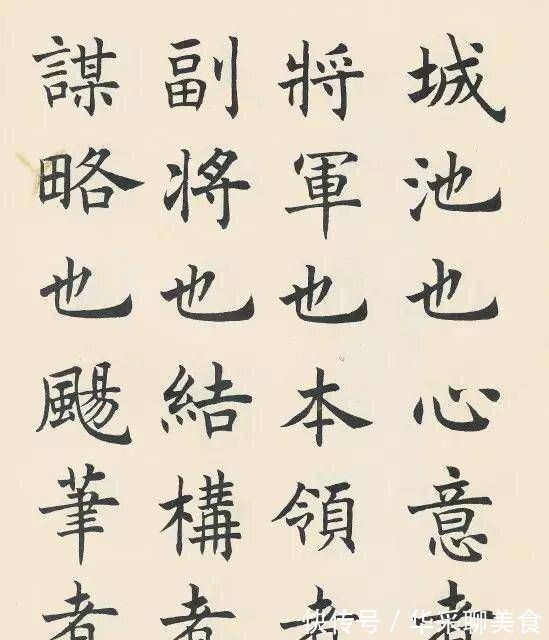 城池也心意者
將軍也本領者
副将也結構者
謀略也颺筆者
快传号／华采聊美食